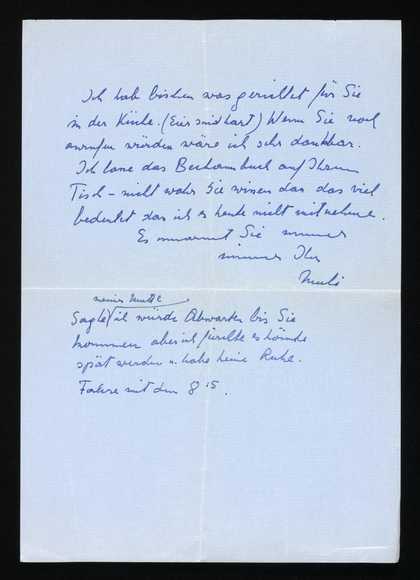 Ich habe bischen was gerichtet für Sie
in der Küche. (Eier sind hart) Wenn Sie noch
anrufen würden wäre ich sehr dankbar.
Ich lasse das Buch auf Ihrem
Tisch – nicht wahr Sie wissen das das viel
bedeutet das ich es heute nicht mitnehme.
Es umarmt Sie immer
immer Ihr
meiner Mutter
Sagte ich würde Abwarten bis Sie
kommen aber ich fürchte es könnte
spät werden u. habe keine Ruhe.
Fahre mit dem 8 15.